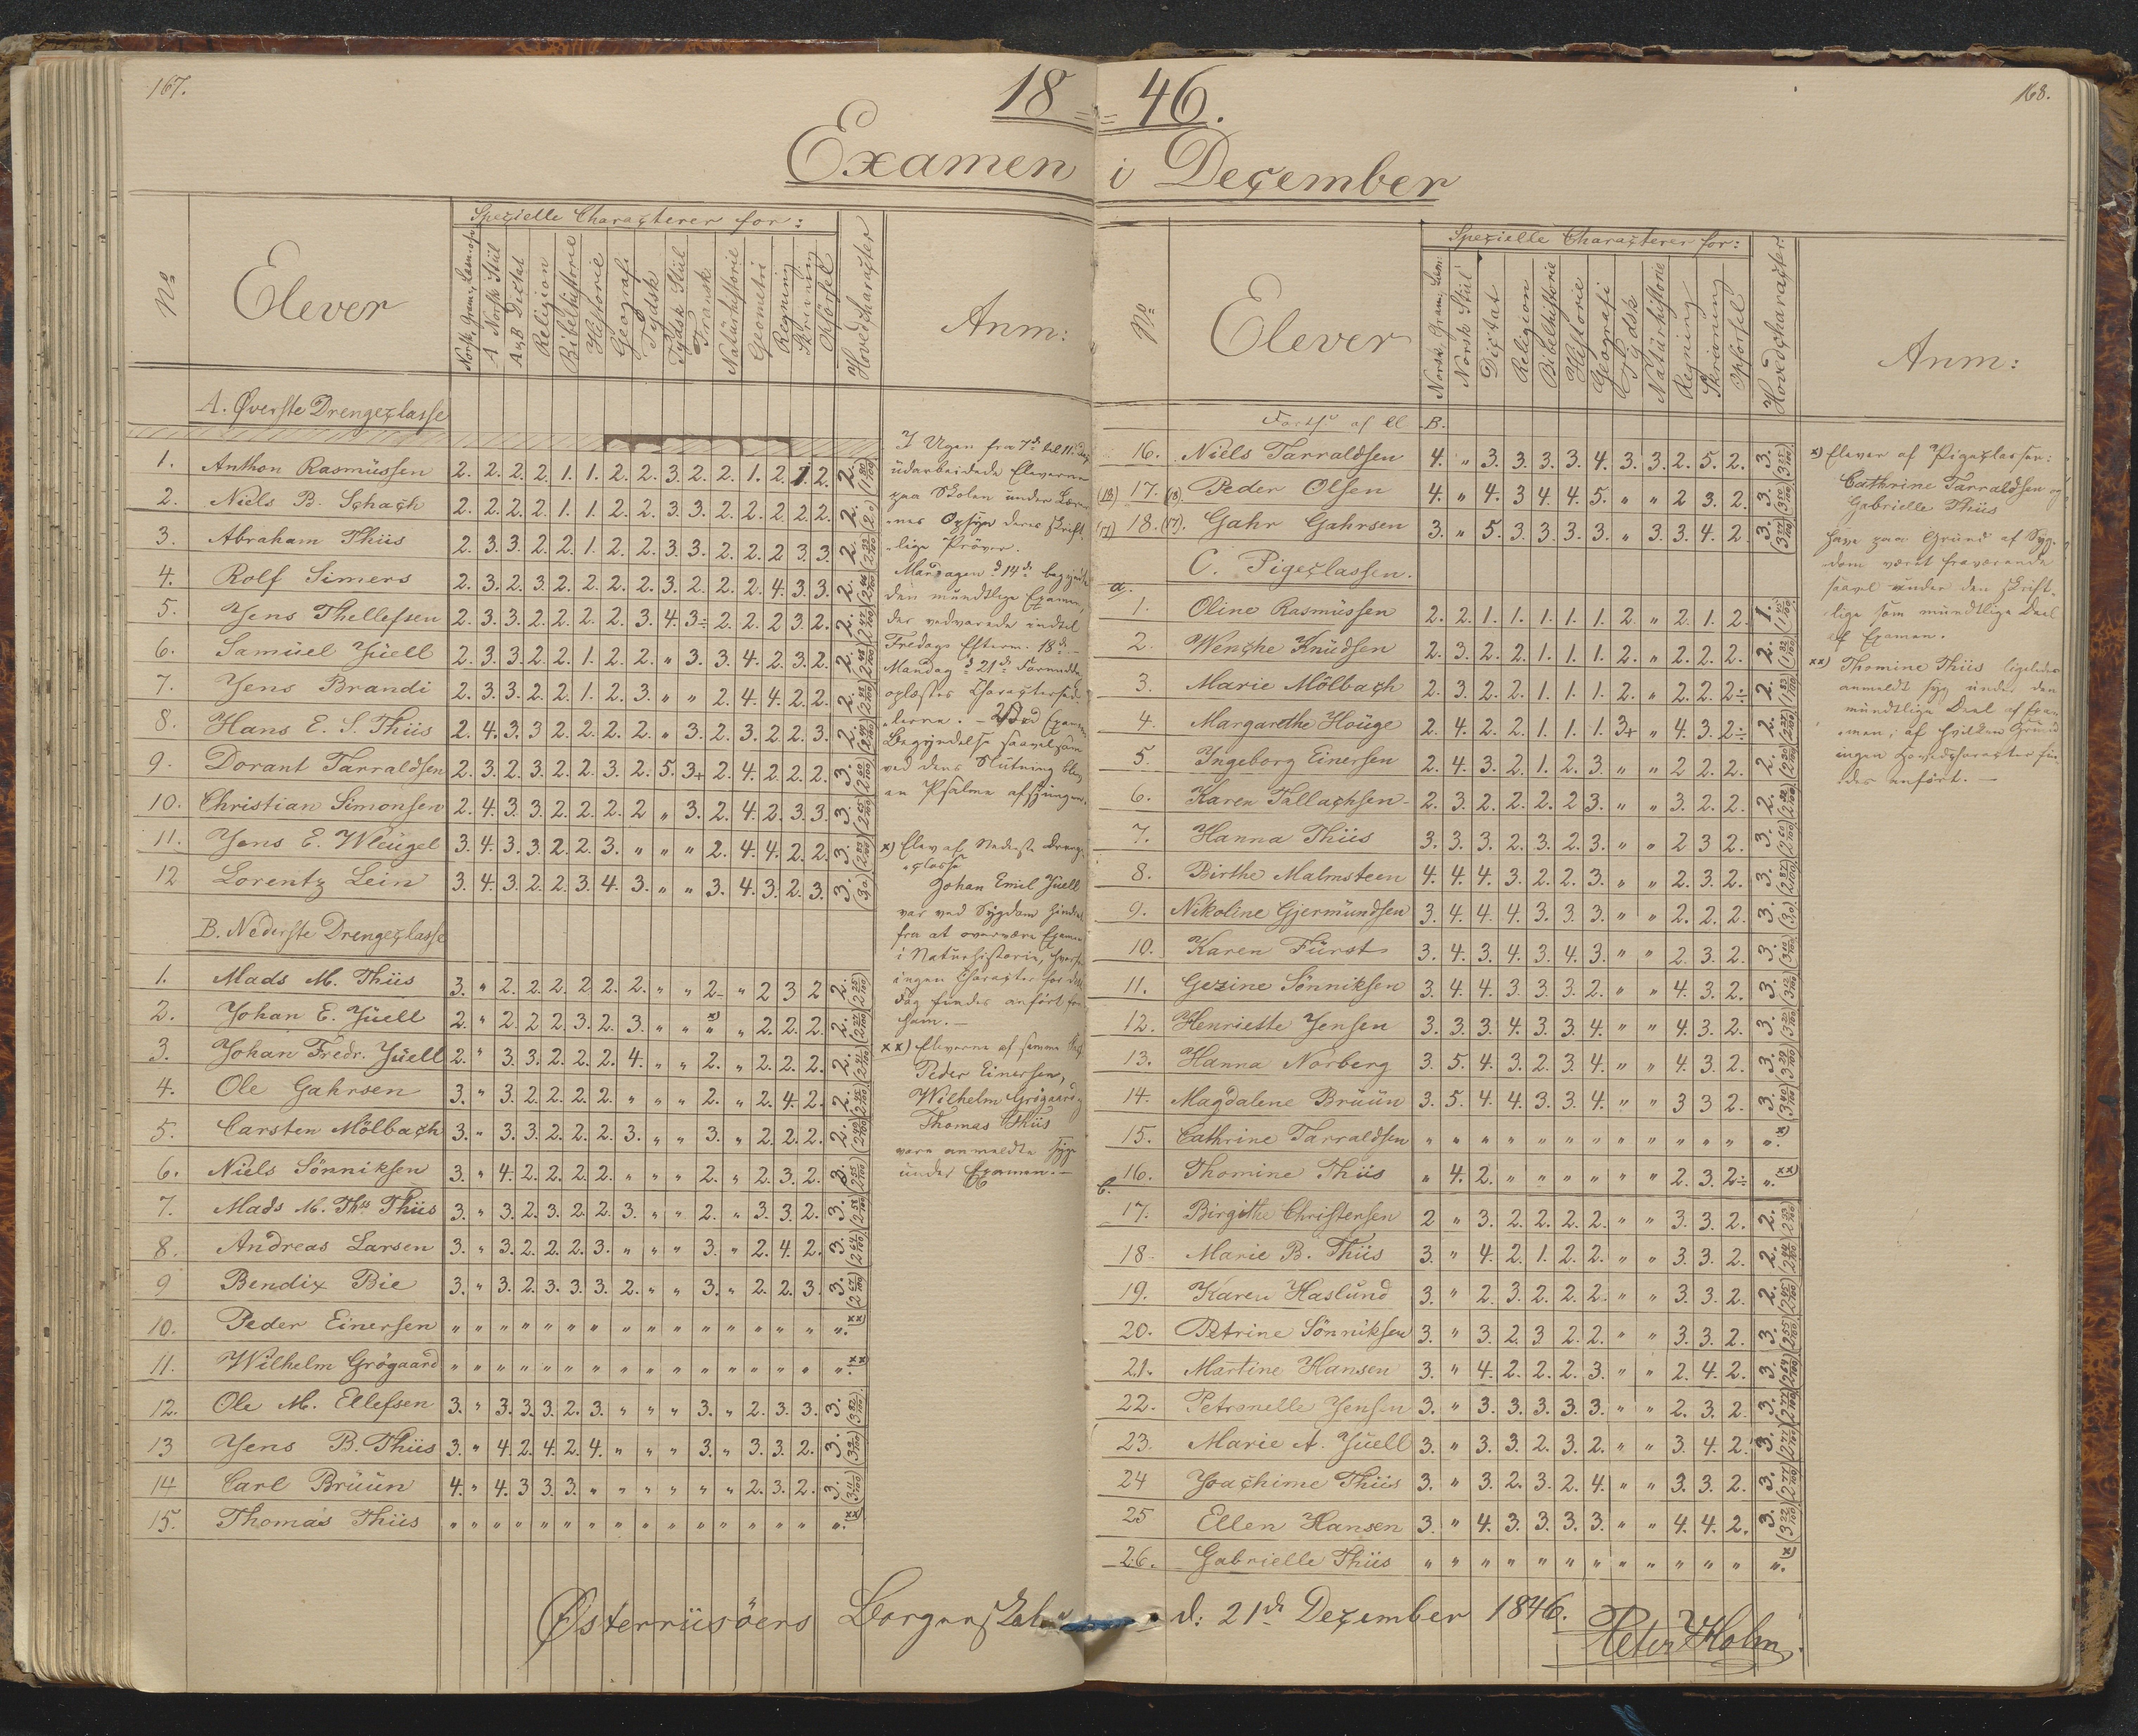 167.
18 = 46.
168.
Examen i December
No
Elever
Specielle Characterer for:
Norsk, Gram., Læsn.
A Norsk Stiil
A & B Dictat
Religion
Bibelhistorie
Historie
Geografi
Tydsk
Tydsk Stiil
Fransk
Naturhistorie
Geometri
Regning
Skrivning
Opførsel
Hovedcharacter
Anm:
A. Øverste Drengeclasse
1. Anthon Rasmüssen 2. 2. 2. 2. 1. 1. 2. 2. 3. 2. 2. 1. 2. 1. 2. 2. (1 80/100)
2. Niels B. Schach 2. 2. 2. 2. 1. 1. 2. 2. 3. 3. 2. 2. 2. 2. 2. 2. (2.0)
3. Abraham Thiis 2. 3. 3. 2. 2. 1. 2. 2. 3. 3. 2. 2. 2. 3. 3. 2. (2 33/100)
4. Rolf Simers 2. 3. 2. 3. 2. 2. 2. 2. 3. 2. 2. 2. 4. 3. 3. 2.
5. Jens Thellefsen 2. 3. 3. 2. 2. 2. 2. 3. 4. 3÷ 2. 2. 2. 3. 2. 2. (2 47/100)
6. Samüel Jüell 2. 3. 3. 2. 2. 1. 2. 2. " 3. 3. 4. 2. 3. 2. 2.
7. Jens Brandi 2. 3. 3. 2. 2. 1. 2. 3. " " 2. 4. 4. 2. 2. 2.
8. Hans E. S. Thiis 2. 4. 3. 3 2. 2. 2. 2. " 3. 2. 3. 2. 2. 3. 2.
9. Dorant Tarraldsen 2. 3. 2. 3. 2. 2. 3. 2. 5. 3+ 2. 4. 2. 2. 2. 3. (2 60/100)
10. Christian Simonsen 2. 4. 3. 3 2. 2. 2. 2 " 3. 2. 4. 2. 3. 3. 3.
11. Jens E. Wleügel 3. 4. 3. 3. 2. 2. 3. " " " 2. 4. 4. 2. 2. 3.
12 Lorentz Lein 3. 4. 3. 2. 2. 3. 4. 3. " " 3. 4. 3. 2. 3. 3. (3.0)
B. Nederste Drengeclasse
1. Mads M. Thiis 3. " 2. 2. 2. 2 2. 2. " " 2. " 2 3 2 2. (2 25/100)
2. Johan E. Jüell 2. " 2. 2 2. 3. 2. 3. " " "x) " 2. 2. 2. 2. (2 27/100)
3. Johan Fredr. Jüell 2. " 3. 3. 2. 2. 2. 4. " " 2. " 2. 2. 2. 2.
4. Ole Gahrsen 3. " 3. 2. 2. 2. 2. " " " 2. " 2. 4. 2. 2.
5. Carsten Mölbach 3. " 3. 3. 2. 2. 2. 3. " " 3. " 2. 2. 2. 2.
6. Niels Sönniksen 3. " 4. 2. 2. 2. 2. " " " 2. " 2. 3. 2. 3.
7. Mads M. Ths Thiis 3. " 3. 2. 3. 2. 2. 3. " " 2. " 3. 3. 2. 3. (2 58/100)
8. Andreas Larsen 3. " 3. 2. 2. 2. 3. " " " 3. " 2. 4. 2. 3. (2 64/100)
9 Bendix Bie 3. " 3. 2. 3. 3. 3. 2. " " 3. " 2. 2. 3. 3. (2 67/100)
10. Peder Einersen " " " " " " " " " " " " " " " ". xx)
11. Wilhelm Grögaard " " " " " " " " " " " " " " " ". xx)
12. Ole M. Ellefsen 3. " 3. 3. 3. 2. 3. " " " 3. " 2. 3. 3. 3.
13 Jens B. Thiis 3. " 4. 2. 4. 2. 4. " " " 3. " 3. 3. 2. 3.
14 Carl Brüün 4. " 4. 3 3. 3. " " " " " " 2. 3. 2. 3.
15. Thomas Thiis " " " " " " " " " " " " " " " ". xx)
I Ugen fra 7de til 11te
udarbeidede Eleverne
paa Skolen under Lærer-
nes Opsyn deres skrift-
lige Prøver.
Mandagen d 14de begyndte
den mundtlige Examen,
der vedvarede indtil
Fredags Efterm. 18de.
Mandag d 21de Formiddag
oplæstes Characterseddelerne. - Ved Examens
Begyndelse saavelsom
ved dens Slutning blev
en Psalme afsjungen.
x) Elev af Nederste Drenge-
classe
Johan Emil Jüell
var ved Sygdom hindret
fra at overvære Examen
i Naturhistorie, hvorfor
ingen Character for dette
Fag findes anført for
ham. -
xx) Eleverne af samme
Peder Einersen,
Wilhelm Grögaard
Thomas Thiis
vare anmeldte syge
under Examen. -
No
Elever
Specielle Characterer for:
Norsk. Gram., Læsn.
Norsk Stiil
Dictat
Religion
Bibelhistorie
Historie
Geografi
Tydsk
Naturhistorie
Regning
Skrivning
Opførsel
Hovedcharacter.
Anm:
Forts. af B.
16. Niels Tarraldsen 4. " 3. 3. 3. 3. 4. 3. 3. 2. 5. 2. 3.
(18) 17. (18) Peder Olsen 4. " 4. 3 4. 4. 5. " " 2 3. 2. 3.
(17) 18. (17). Gahr Gahrsen 3. " 5. 3. 3. 3. 3. " 3. 3. 4. 2. 3.
C. Pigeclassen.
a.
1. Oline Rasmüssen 2. 2. 1. 1. 1. 1. 1. 2. " 2. 1. 2. 1.
2. Wenche Knüdsen 2. 3. 2. 2. 1. 1. 1. 2. " 2. 2. 2. 2.
3. Marie Mölbach 2. 3. 2. 2. 1. 1. 1. 2. " 2. 2. 2÷ 2.
4. Margarethe Houge 2. 4. 2. 2. 1. 1. 1. 3+ " 4. 3. 2÷ 2.
5. Ingeborg Einersen 2. 4. 3. 2. 1. 2. 3. " " 2. 2. 2. 2.
6. Karen Tallachsen 2. 3. 2. 2. 2. 2 3. " " 3. 2. 2. 2.
7. Hanna Thiis 3. 3. 3. 2. 3. 2. 3. " " 2 3 2. 3.
8. Birthe Malmsteen 4. 4. 4. 3. 2. 2. 3. " " 2. 3. 2. 3.
9. Nikoline Gjermündsen 3. 4. 4. 4. 3. 3. 3. " " 2. 2. 2. 3. (3.0)
10. Karen Fürst 3. 4. 3. 4. 3. 4. 3. " " 2. 3. 2. 3.
11. Gezine Sönniksen 3. 4. 4. 3. 3. 3. 2. " " 4. 3. 2. 3.
12. Henriette Jensen 3. 3. 3. 4. 3. 3. 4. " " 4. 3. 2. 3.
13. Hanna Norberg 3. 5. 4. 3. 2. 3. 4. " " 4. 3. 2. 3.
14. Magdalene Brüün 3. 5. 4. 4. 3. 3. 4. " " 3 3 2. 3.
15. Cathrine Tarraldsen " " " " " " " " " " " " ". x)
16. Thomine Thiis " 4. 2. " " " " " " 2. 3. 2÷ ". xx)
b.
17. Birgithe Christensen 2 " 3. 2. 2. 2. 2. " " 3. 3. 2. 2.
18 Marie B. Thiis 3. " 4. 2. 1. 2. 2. " " 3. 3. 2. 2.
19. Karen Haslund 3. " 2. 3. 2. 2. 2. " " 3. 3. 2. 2.
20. Petrine Sönniksen 3. " 3. 2. 3 2. 2. " " 3. 3. 2. 3.
21. Martine Hansen 3. " 4. 2. 2. 2. 3. " " 2. 4. 2. 3.
22. Petronelle Jensen 3. " 3. 3. 3. 3. 3. " " 2. 3. 2. 3.
23. Marie A. Jüell 3. " 3. 3. 2. 3. 2. " " 3. 4. 2. 3.
24 Joachime Thiis 3. " 3. 2. 3. 2. 4. " " 3. 3. 2. 3.
25 Ellen Hansen 3. " 4. 3. 3. 3. 3. " " 4. 4. 2. 3.
26. Gabrielle Thiis " " " " " " " " " " " " ". x)
x) Elever af Pigeclassen:
Cathrine Tarraldsen og
Gabrielle Thiis
have paa Grund af Syg-
dom været fraværende
saavel under den skrift-
lige som mundtlige Deel
af Examen.
xx) Thomine Thiis ligeledes
anmeldt syg under den
mundtlige Deel af Exa-
men, af hvilken Grund
ingen Hovedcharacter fin-
des anført. -
Østerriisöers Borgerskole d: 21de December 1846.
Peter Holm.